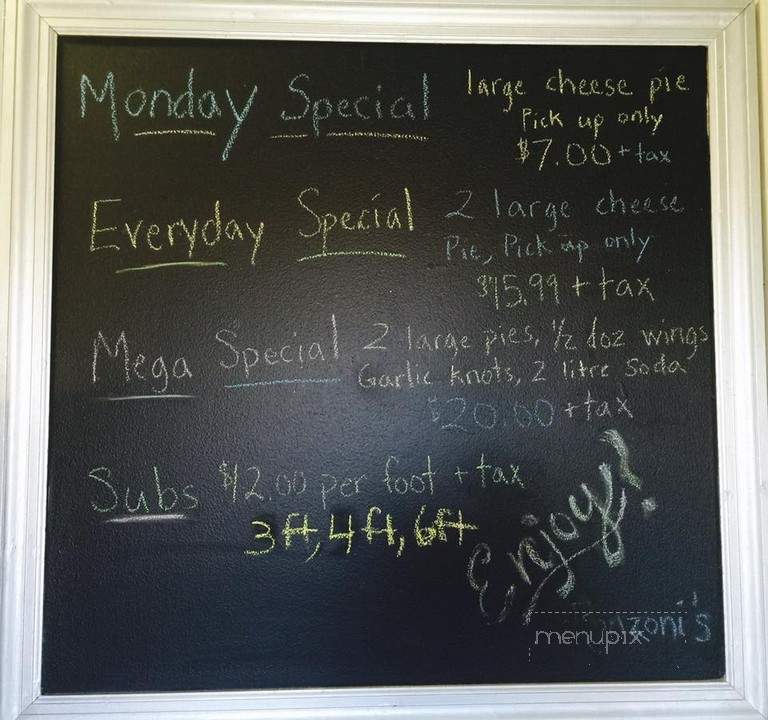 Monday Special
large cheese pie
Pick up only
$7.00 + tax
Everyday Special
2 large cheese
Pie, Pick up only
$15.99 + tax
Mega Special
2 large pies, 1/2 doz wings
Garlic Knots, 2 litre Soda
$20.00 + tax
Subs $12.00 per foot + tax
3 ft, 4 ft, 6 ft
Enjoy!
menupix